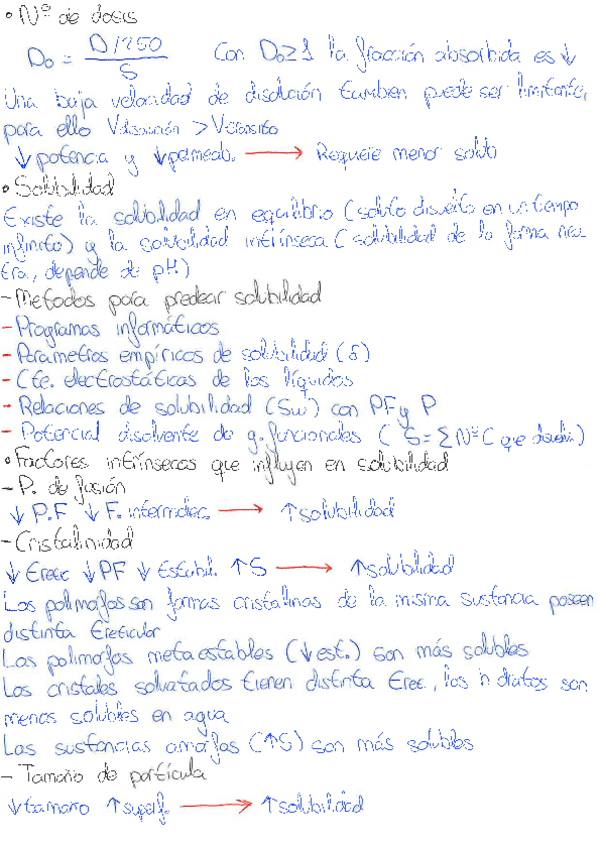 • Nº de dosis
Do = D/250 / S Con Do≥1 la fracción absorbida es ↓
Una baja velocidad de disolución tambien puede ser limitante,
para ello Vdisolución > Vtransito
↓ potencia y ↓ permeab. → Requiere menor solub
• Solubilidad
Existe la solubilidad en equilibrio (soluto disuelto en un tiempo
infinito) y la solubilidad intrínseca (solubilidad de la forma neu
tra, depende de pH)
- Metodos para predecir solubilidad
- Programas informáticos
- Parametros empíricos de solubilidad (δ)
- Cte. electrostáticas de los líquidos
- Relaciones de solubilidad (Sw) con PF y P
- Potencial disolvente de g. funcionales ( S = Σ Nº C que )
• Factores intrínsecos que influyen en solubilidad
- P. de fusión
↓ P.F ↓ F. intermolec. → ↑ solubilidad
- Cristalinidad
↓ Eretic ↓ PF ↓ Estabil. ↑ S → ↑ solubilidad
Los polimorfos son formas cristalinas de la misma sustancia poseen
distinta Ereticular
Los polimorfos metaestables (↓ est.) son más solubles
Los cristales solvatados tienen distinta Eret., los hidratos son
menos solubles en agua
Las sustancias amorfas (↑S) son más solubles
- Tamaño de partícula
↓ tamaño ↑ superf. → ↑ solubilidad